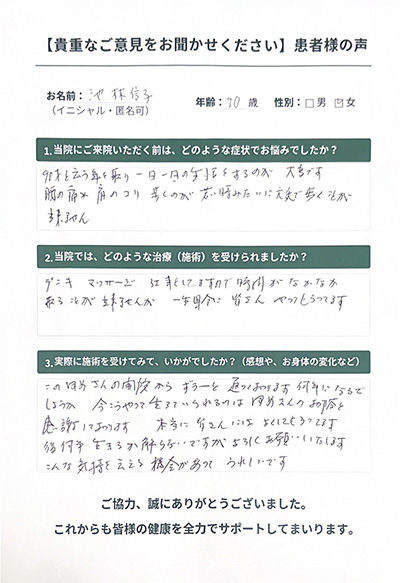 【貴重なご意見をお聞かせください】患者様の声
お名前： 池林信子
（イニシャル・匿名可）
年齢： 90 歳 性別：□男 ☑女
1.当院にご来院いただく前は、どのような症状でお悩みでしたか？
90才と云う年を取り 一日一日の生活をするのが 大変です
腰の痛み 肩のコリ 歩くのが 若い時みたいに元気で歩くことが
出来ません
2.当院では、どのような治療（施術）を受けられましたか？
デンキ マッサージ 仕事としてますので時間がなかなか
取ることが出来ませんが 一生懸命に皆さん やってもらってます
3.実際に施術を受けてみて、いかがでしたか？（感想や、お身体の変化など）
この さんの開院から ずーと 通っております 何年になるで
しょうか 今こうやって生きていられるのは さんのお陰と
感謝しております 本当に皆さんには よくしてもらってます
後何年生きるか解らないですが よろしくお願いいたします
こんな気持を云える機会があって うれしいです
ご協力、誠にありがとうございました。
これからも皆様の健康を全力でサポートしてまいります。